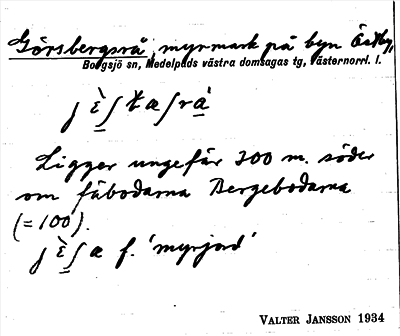 Görsbergsrå, myrmark på byn Östby,
Borgsjö sn, Medelpads västra domsagas tg, Västernorrl. l.
Ligger ungefär 300 m. söder
om fäbodarna Bergebodarna
(=100).
f. 'myrjord'
VALTER JANSSON 1934